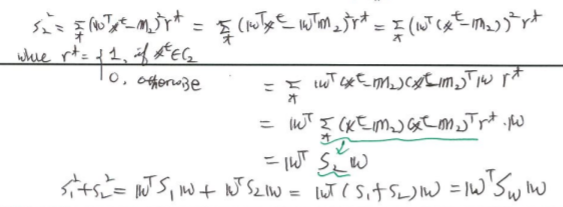 s₂² = Σ_t (wᵀxᵗ - m₂)² rᵗ = Σ_t (wᵀxᵗ - wᵀm₂)² rᵗ = Σ_t (wᵀ(xᵗ - m₂))² rᵗ
where rᵗ = { 1, if xᵗ ∈ C₂
0, otherwise = Σ_t wᵀ(xᵗ - m₂)(xᵗ - m₂)ᵀ w rᵗ
= wᵀ Σ_t (xᵗ - m₂)(xᵗ - m₂)ᵀ rᵗ · w
= wᵀ S₂ w
s₁² + s₂² = wᵀ S₁ w + wᵀ S₂ w = wᵀ (S₁ + S₂) w = wᵀ S_w w